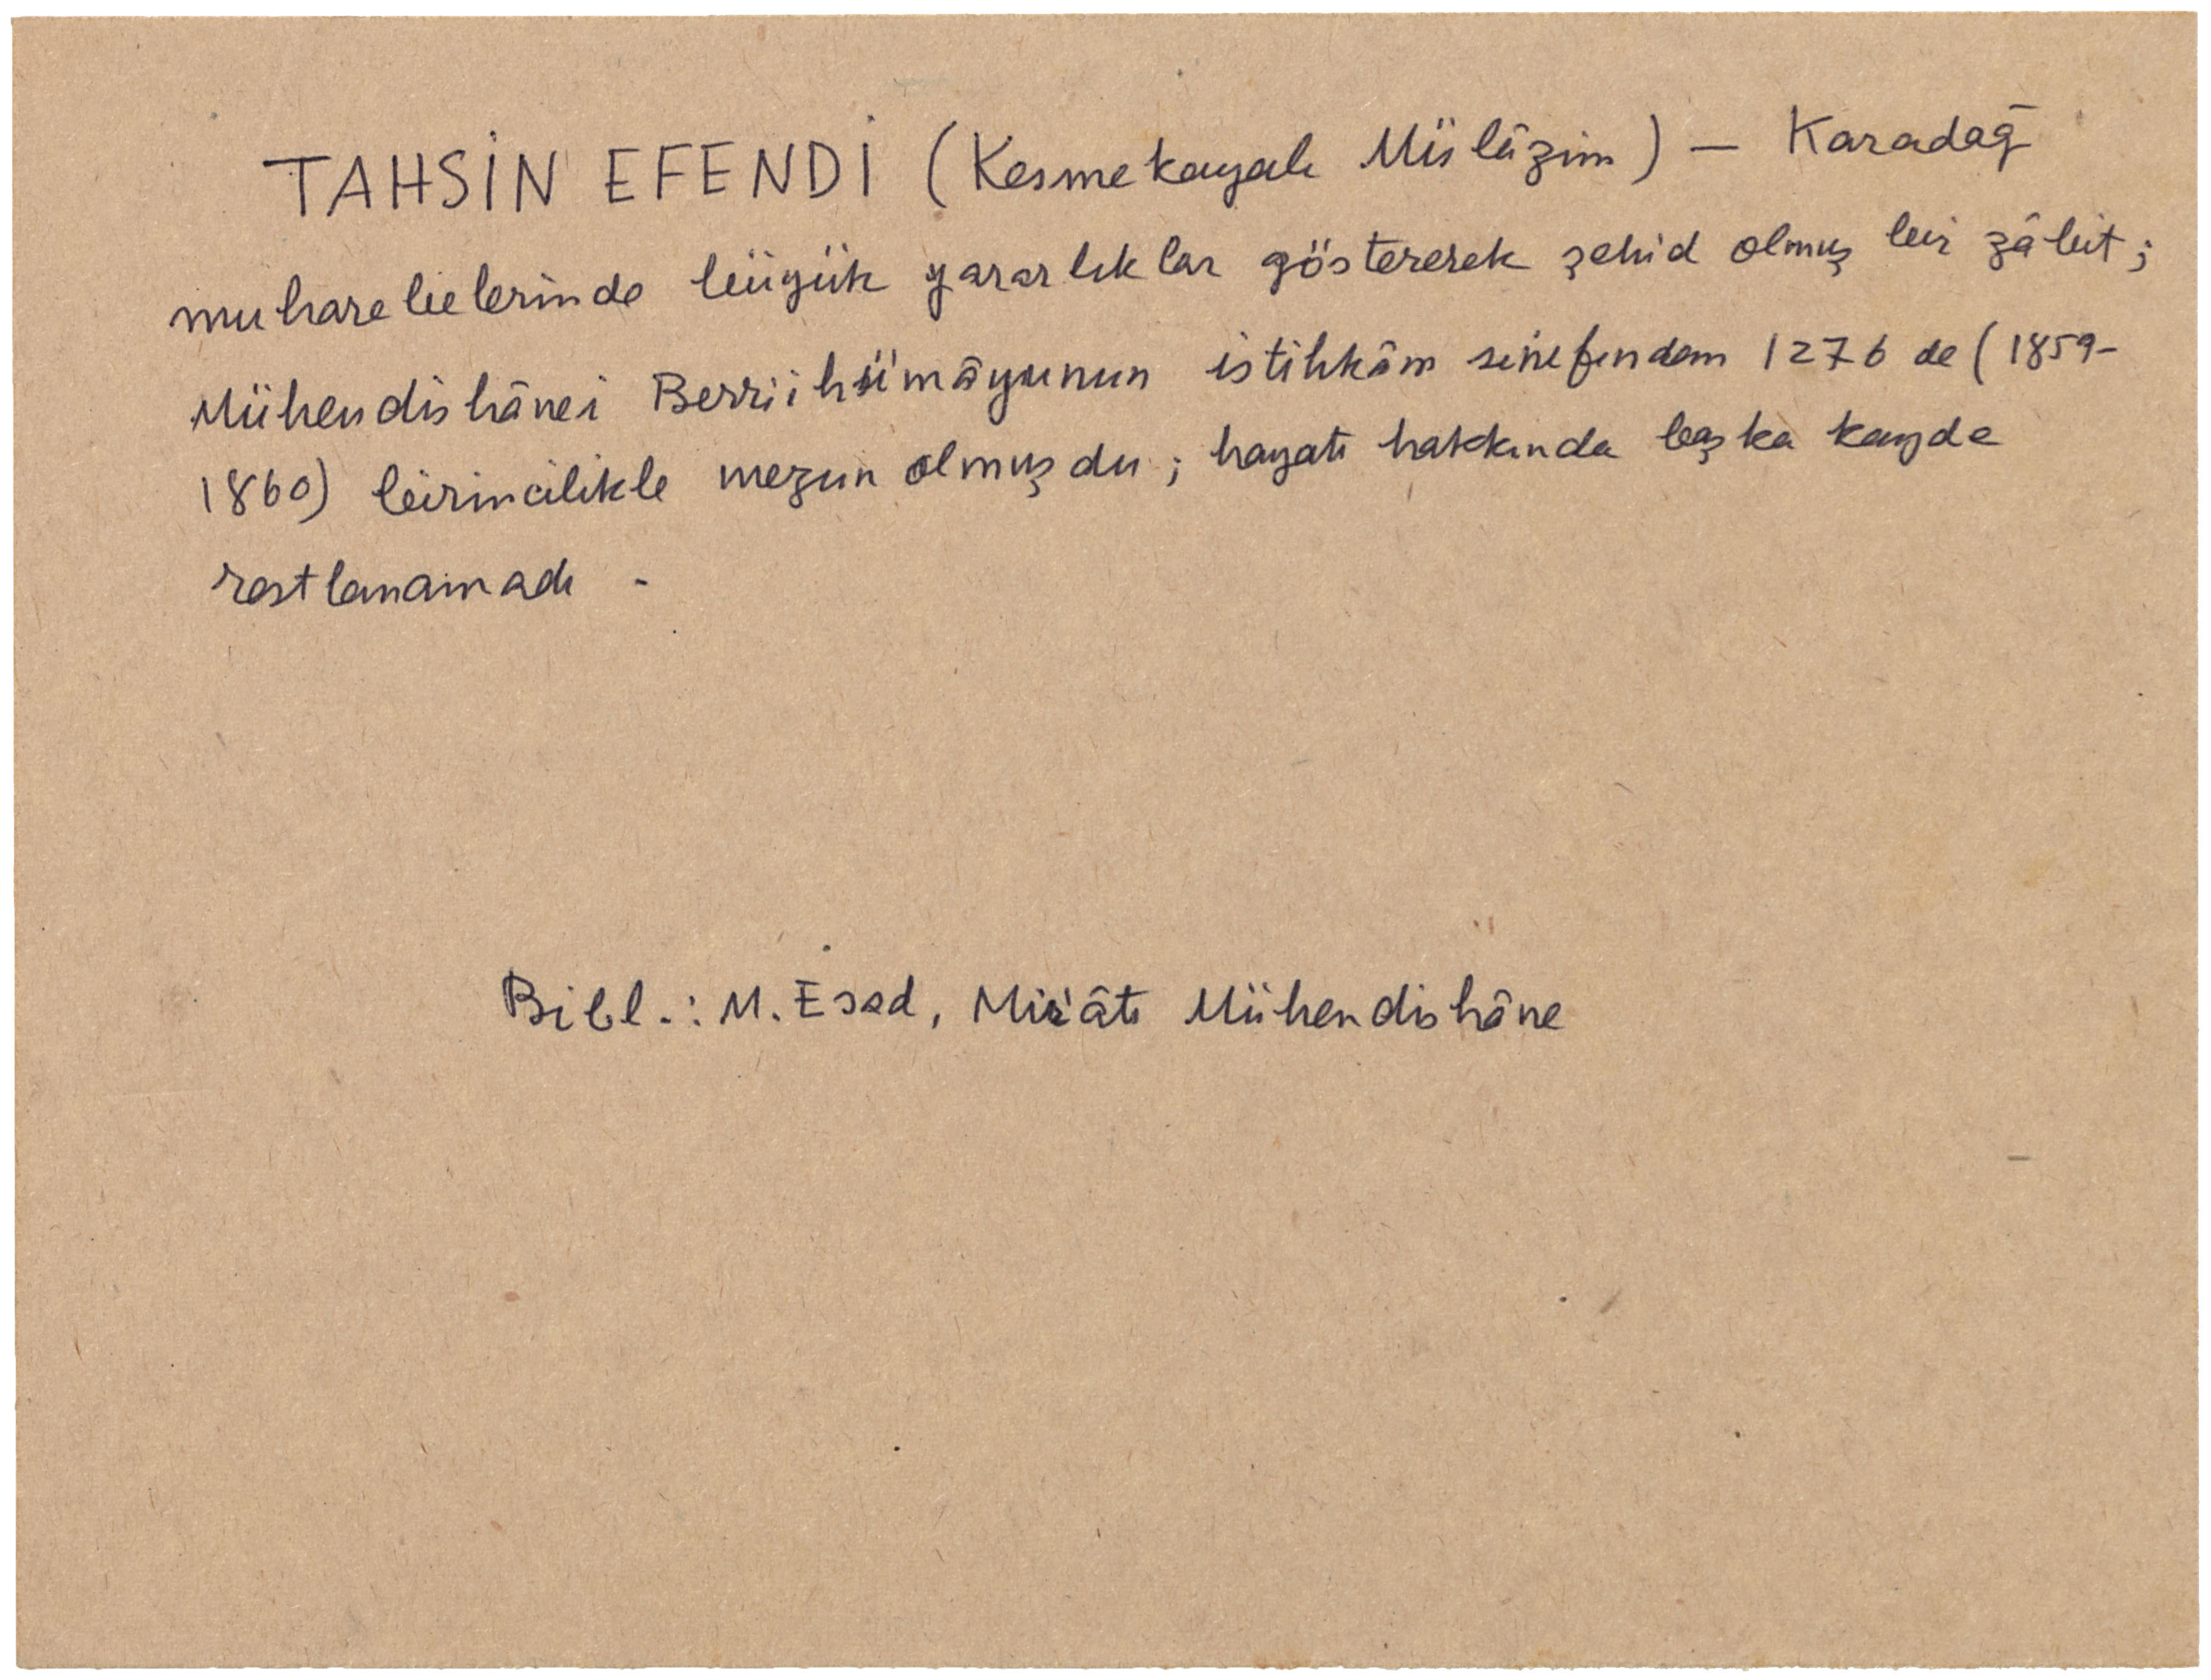 TAHSİN EFENDİ (Kesmekayalı Mülâzim) — Karadağ
muharebelerinde büyük yararlıklar göstererek şehid olmuş bir zâbit;
Mühendishânei Berriihümâyunun istihkâm sınıfından 1276 de (1859-
1860) birincilikle mezun olmuşdu; hayatı hakkında başka kayde
rastlanamadı.
Bibl.: M. Esad, Mir'âtı Mühendishâne